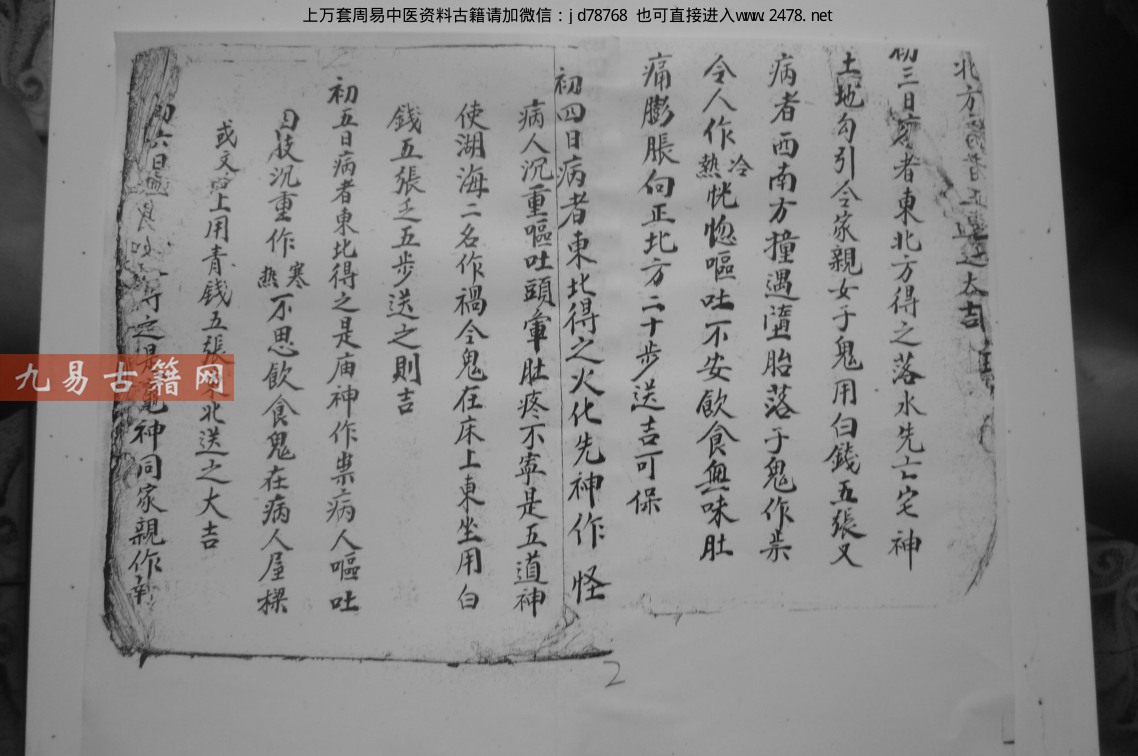 上万套周易中医资料古籍请加微信：jd78768 也可直接进入www.2478.net
北方五送之大吉
初三日病者東北方得之落水先亡宅神
土地勾引令家親女子鬼用白錢五張又
病者西南方撞遇墮胎落子鬼作祟
令人作冷熱恍惚嘔吐不安飲食無味肚
痛膨脹向正北方二十步送吉可保
初四日病者東北得之火化先神作怪
病人沉重嘔吐頭暈肚疼不寧是五道神
使湖海二名作禍令鬼在床上東坐用白
錢五張乏五步送之則吉
初五日病者東北得之是庙神作祟病人嘔吐
四肢沉重作寒熱不思飲食鬼在病人屋樑
或文上用青錢五張北送之大吉
初六日得之是神同家親作
九易古籍网
2